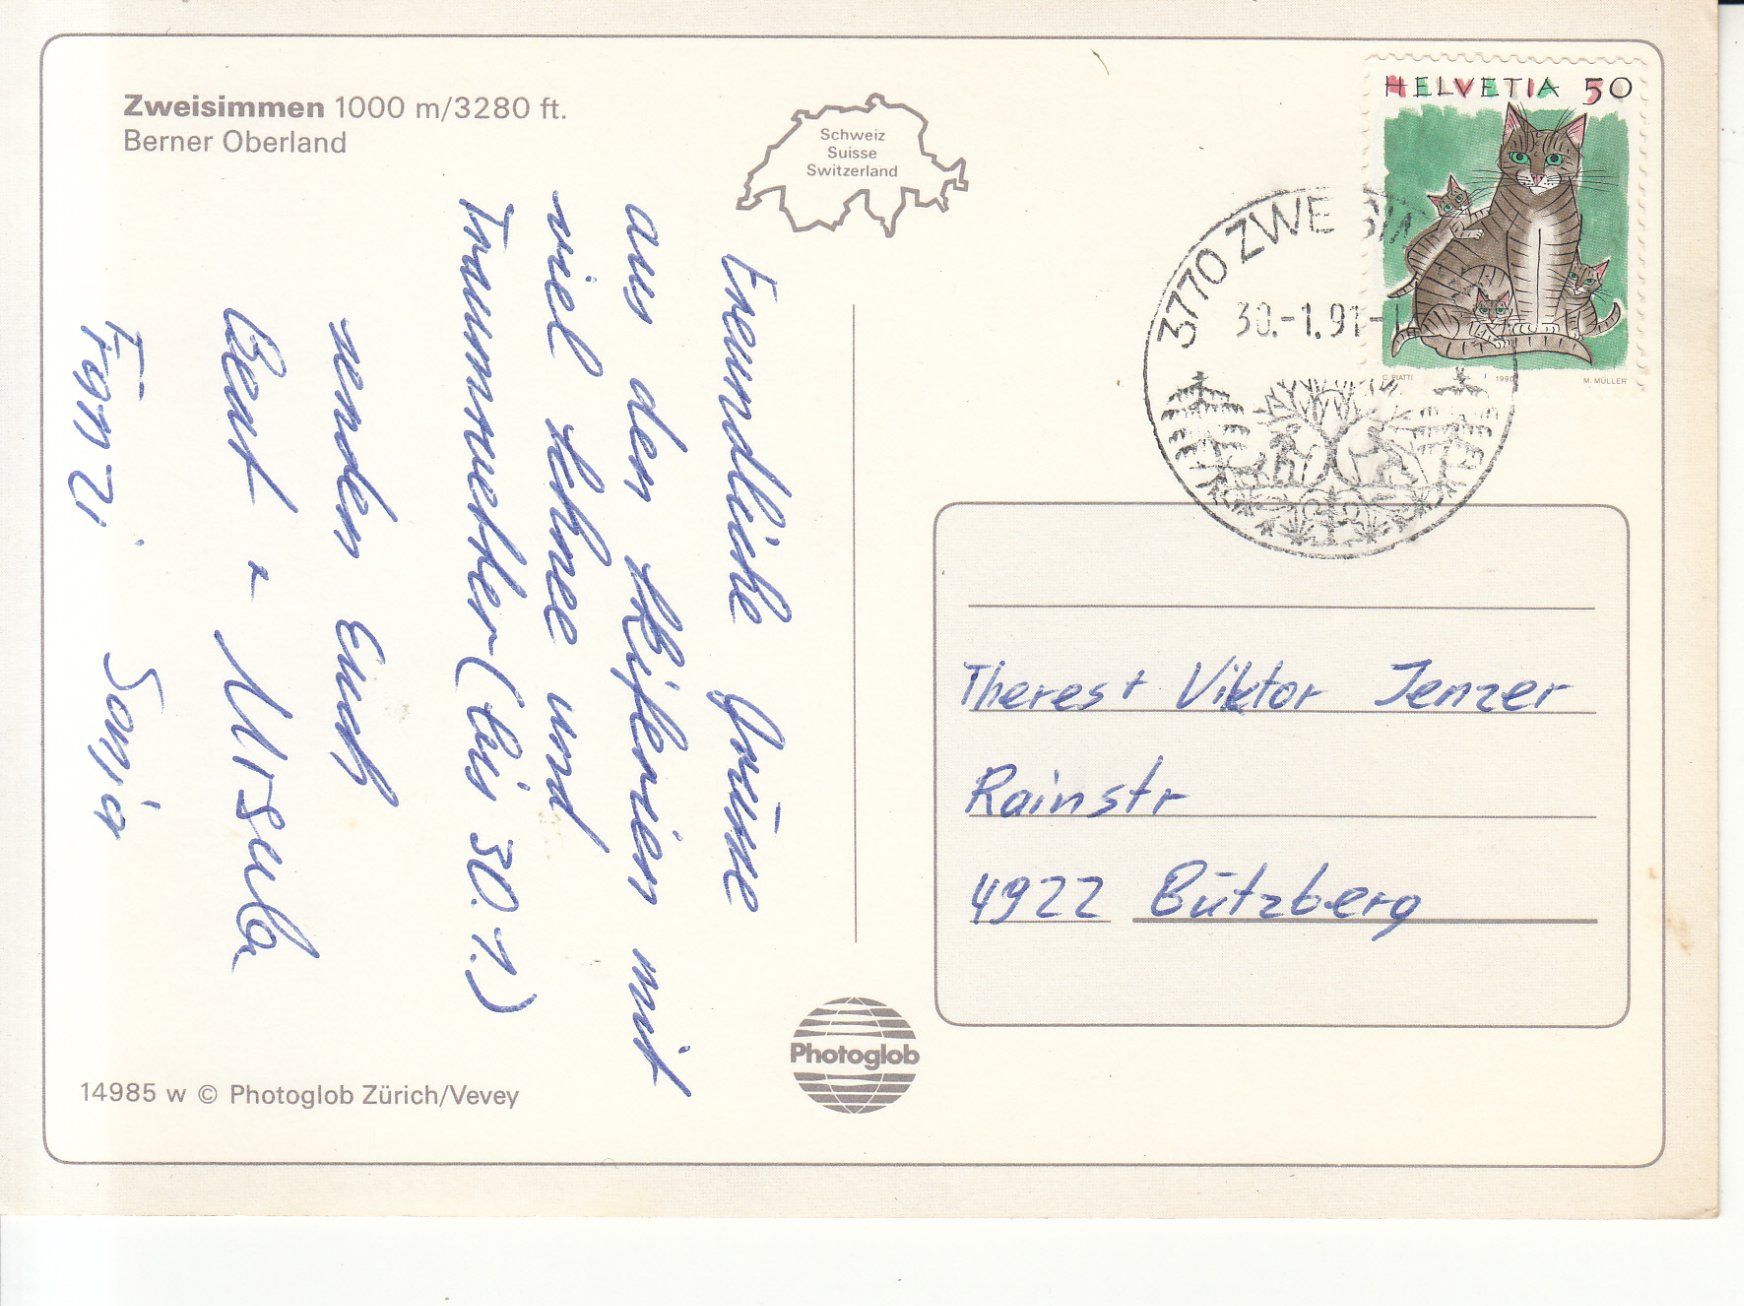 Zweisimmen 1000 m/3280 ft.
Berner Oberland
Schweiz
Suisse
Switzerland
HELVETIA 50
C. PIATTI 1990 M. MÜLLER
3770 ZWE SIM
30.-1.91-1
Freundliche Grüsse
aus den Skiferien mit
viel Schnee und
Traumwetter (bis 30.1.)
senden Euch
Beat + Ursula
Sonja
Theres + Viktor Jenzer
Rainstr
4922 Bützberg
Photoglob
14985 w © Photoglob Zürich/Vevey